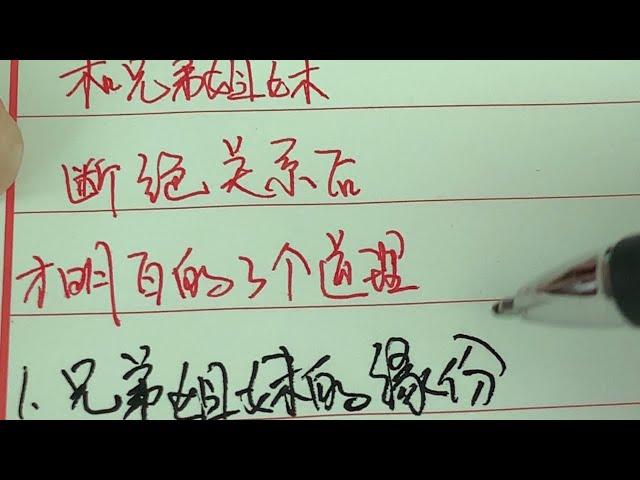 和兄弟姐妹
断绝关系后
才明白的3个道理
1、兄弟姐妹的缘份